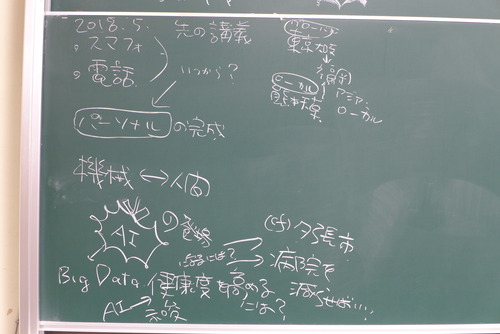 2018.5. 先の講義
・スマフォ
・電話
いつから?
パーソナルの完成
機械↔人間
AIの登場
グローバル
東京
ローカル
熊本
アジア、
ローカル
(cf) 夕張市
病院を
減らせば…
Big Data
AI
健康度を高める
には?